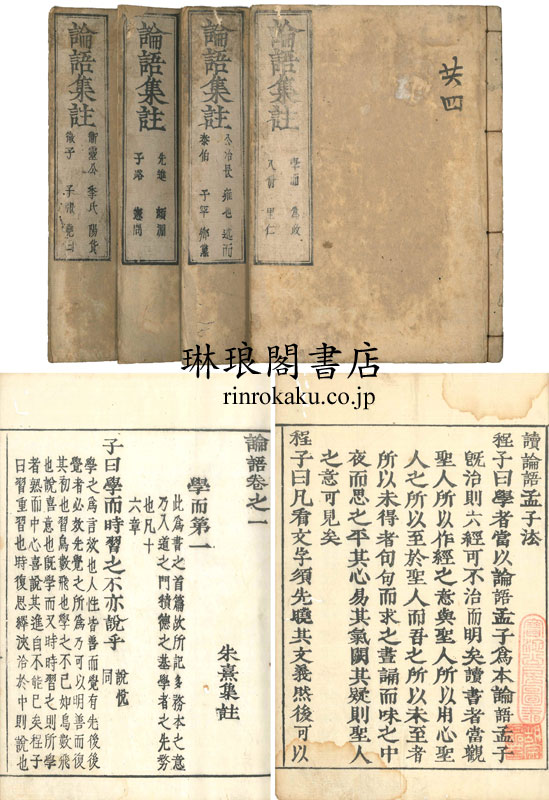 共四
論語集註
學而 為政
八佾 里仁
論語集註
公冶長 雍也 述而
泰伯 子罕 鄉黨
論語集註
先進 顏淵
子路 憲問
論語集註
衛靈公 季氏 陽貨
微子 子張 堯曰
琳琅閣書店
rinrokaku.co.jp
讀論語孟子法
程子曰學者當以論語孟子爲本論語孟子
旣治則六經可不治而明矣讀書者當觀
聖人所以作經之意與聖人所以用心聖
人之所以至於聖人而吾之所以未至者
所以未得者句句而求之晝誦而味之中
夜而思之平其心易其氣闕其疑則聖人
之意可見矣
程子曰凡看文字須先曉其文義然後可以
論語卷之一
朱熹集註
學而第一
此爲書之首篇故所記多務本之意
乃入道之門積德之基學者之先務
也凡十
六章
子曰學而時習之不亦說乎 說悅
同
學之爲言效也人性皆善而覺有先後後
覺者必效先覺之所爲乃可以明善而復
其初也習鳥數飛也學之不已如鳥數飛
也說喜意也旣學而又時時習之則所學
者熟而中心喜說其進自不能已矣程子
曰習重習也時復思繹浹洽於中則說也